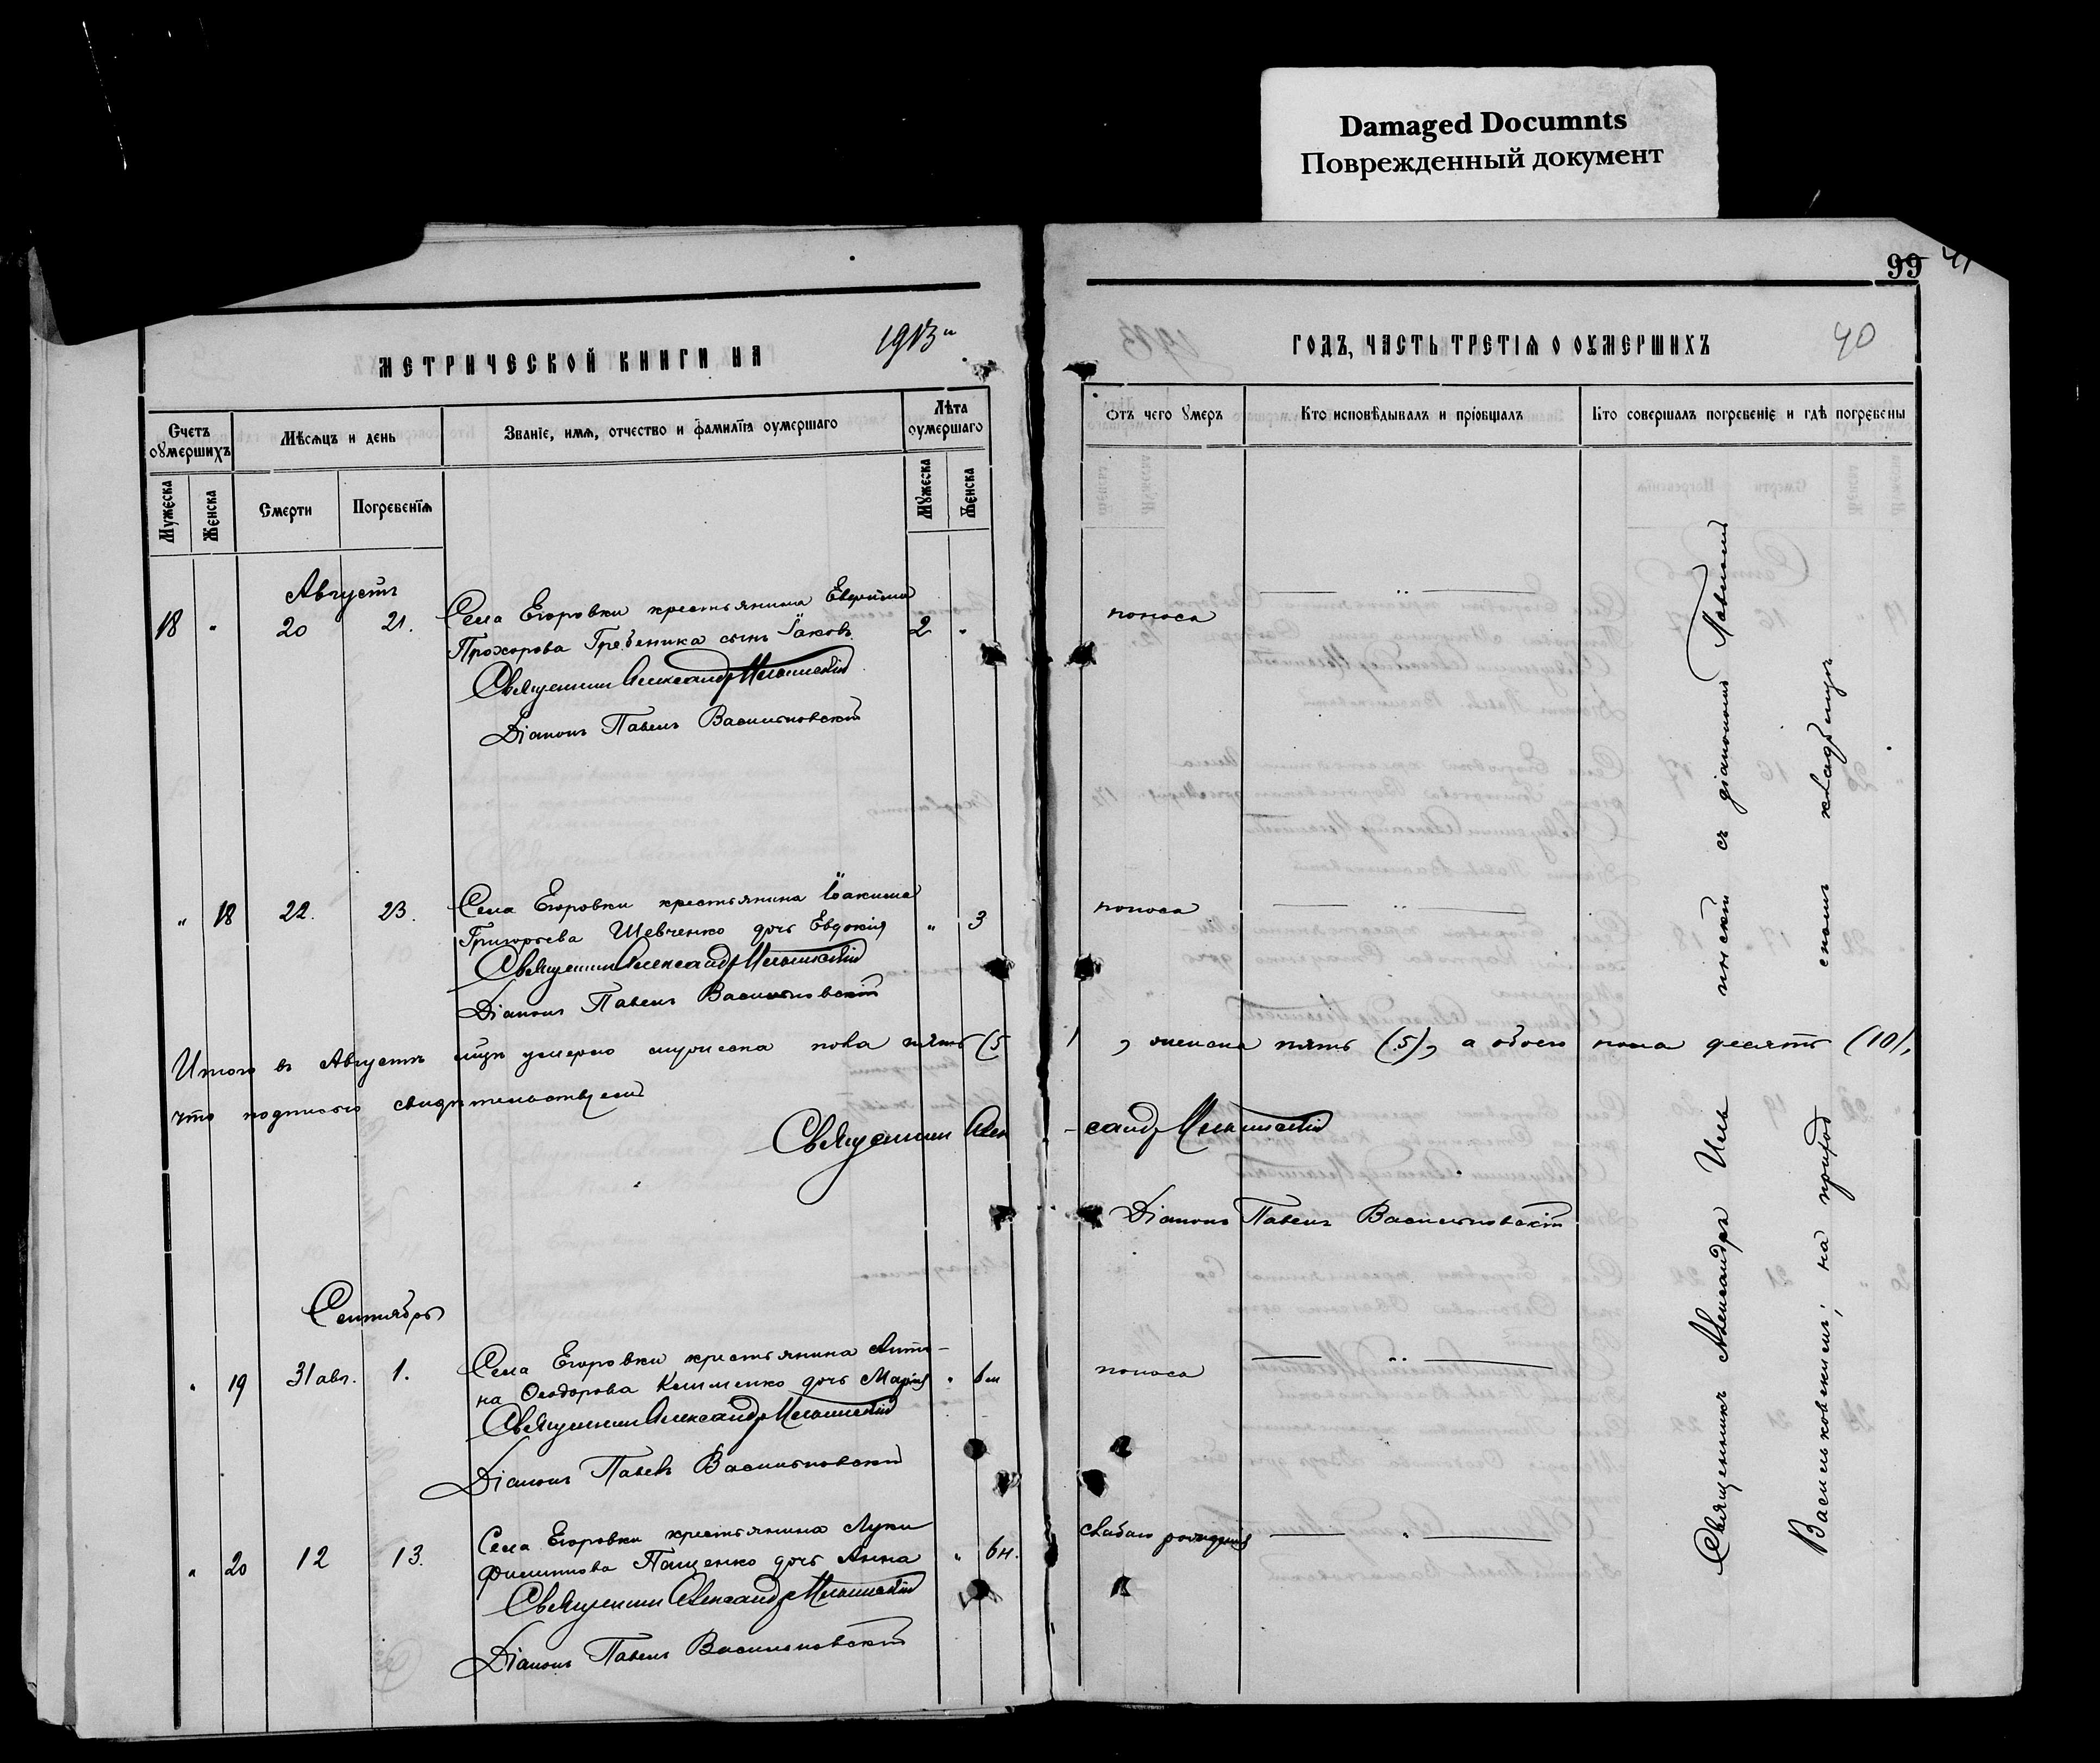 Damaged Documnts
Поврежденный документ
99
40
МЕТРИЧЕСКОЙ КНИГИ НА 1913 ГОДЪ, ЧАСТЬ ТРЕТІЯ О ОУМЕРШИХЪ
Счетъ оумершихъ
Мѣсяцъ и день
Званіе, имя, отчество и фамилія оумершаго
Лѣта оумершаго
Отъ чего умеръ
Кто исповѣдывалъ и пріобщалъ
Кто совершалъ погребеніе и гдѣ погребены
Мужеска
Женска
Смерти
Погребенія
Мужеска
Женска
Августъ
18 " 20 21. Села Егоровки крестьянина 2 " поноса
Прохорова Гребеника сынъ Іаковъ
Священникъ Александръ
Діаконъ Павелъ Васильковскій
" 18 22. 23. Села Егоровки крестьянина Іоакима " 3 поноса
Григорьева Шевченко дочь Евдокія
Священникъ Александръ
Діаконъ Павелъ Васильковскій
Итого въ Августѣ мцѣ умерло мужеска пола пять (5), женска пять (5), а обоего пола десять (10),
что подписью свидѣтельствуемъ
Священникъ Александръ
Діаконъ Павелъ Васильковскій
Сентябрь
" 19 31 авг. 1. Села Егоровки крестьянина Анти-
на Ѳеодорова Клименко дочь Марія " 6 м поноса
Священникъ Александръ
Діаконъ Павелъ Васильковскій
" 20 12 13. Села Егоровки крестьянина Луки
Филиппова Пащенко дочь Анна " 6 н.
Священникъ Александръ
Діаконъ Павелъ Васильковскій
Священникъ Александръ съ діакономъ Павломъ
Васильковскимъ; на приход скомъ кладбищѣ